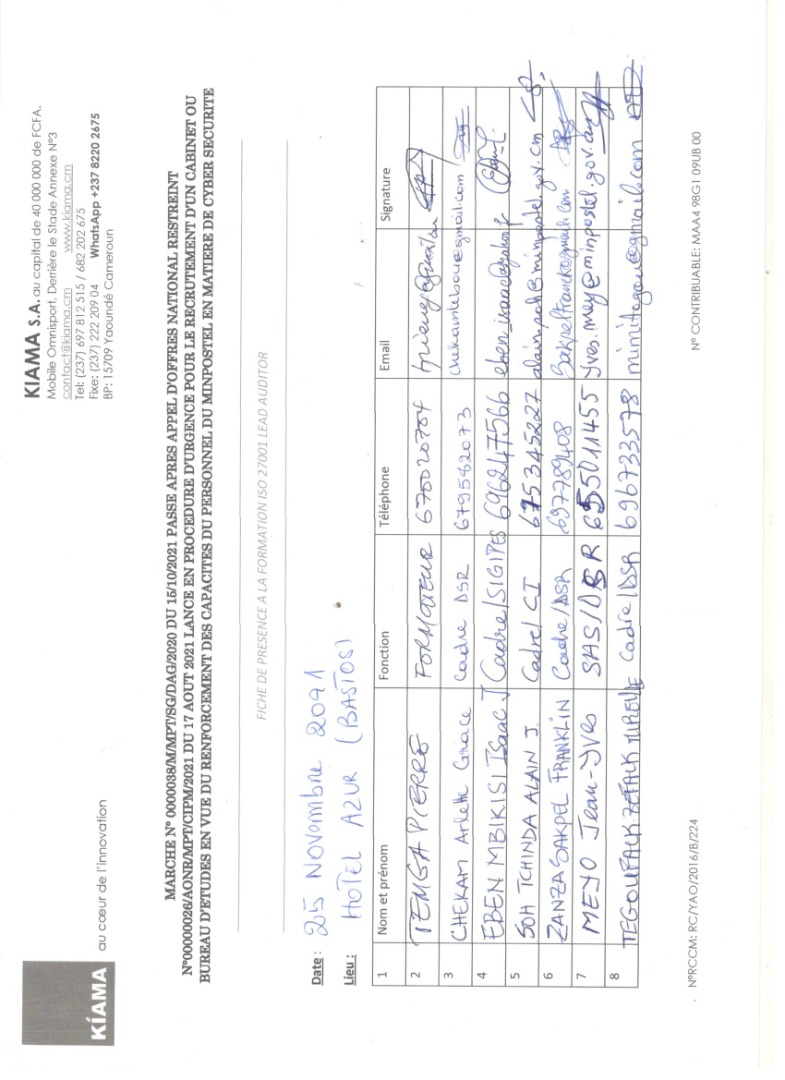 KIAMA
au cœur de l'innovation
KIAMA S.A. au capital de 40 000 000 de FCFA.
Mobile Omnisport, Derrière le Stade Annexe N°3
contact@kiama.cm www.kiama.cm
Tel: (237) 697 812 515 / 682 202 675
Fixe: (237) 222 209 04 WhatsApp +237 8220 2675
BP: 15709 Yaoundé Cameroun
MARCHE N° 0000038/M/MPT/SG/DAG/2020 DU 15/10/2021 PASSE APRES APPEL D'OFFRES NATIONAL RESTREINT
N°00000026/AONR/MPT/CIPM/2021 DU 17 AOUT 2021 LANCE EN PROCEDURE D'URGENCE POUR LE RECRUTEMENT D'UN CABINET OU
BUREAU D'ETUDES EN VUE DU RENFORCEMENT DES CAPACITES DU PERSONNEL DU MINPOSTEL EN MATIERE DE CYBER SECURITE
FICHE DE PRESENCE A LA FORMATION ISO 27001 LEAD AUDITOR
Date : 25 Novembre 2021
Lieu : HOTEL AZUR (BASTOS)
1 Nom et prénom Fonction Téléphone Email Signature
2 TEMGA PIERRE FORMATEUR 670020704
3 CHEKAM Arlette Grace Cadre DSR 679582073
4 EBEN MBIKISI Isaac J Cadre/SIGIPES 696247566
5 SOH TCHINDA ALAIN J. Cadre/ CI 675345227
6 ZANZA SAKPEL FRANKLIN Cadre/DSR 697789408
7 MEYO Jean-YVES SAS/DSR 655011455 Yves.meyo@minpostel.gov.cm
8 Cadre/DSR 696733578
N°RCCM: RC/YAO/2016/B/224
N° CONTRIBUABLE: MAA4 98G1 09UB 00